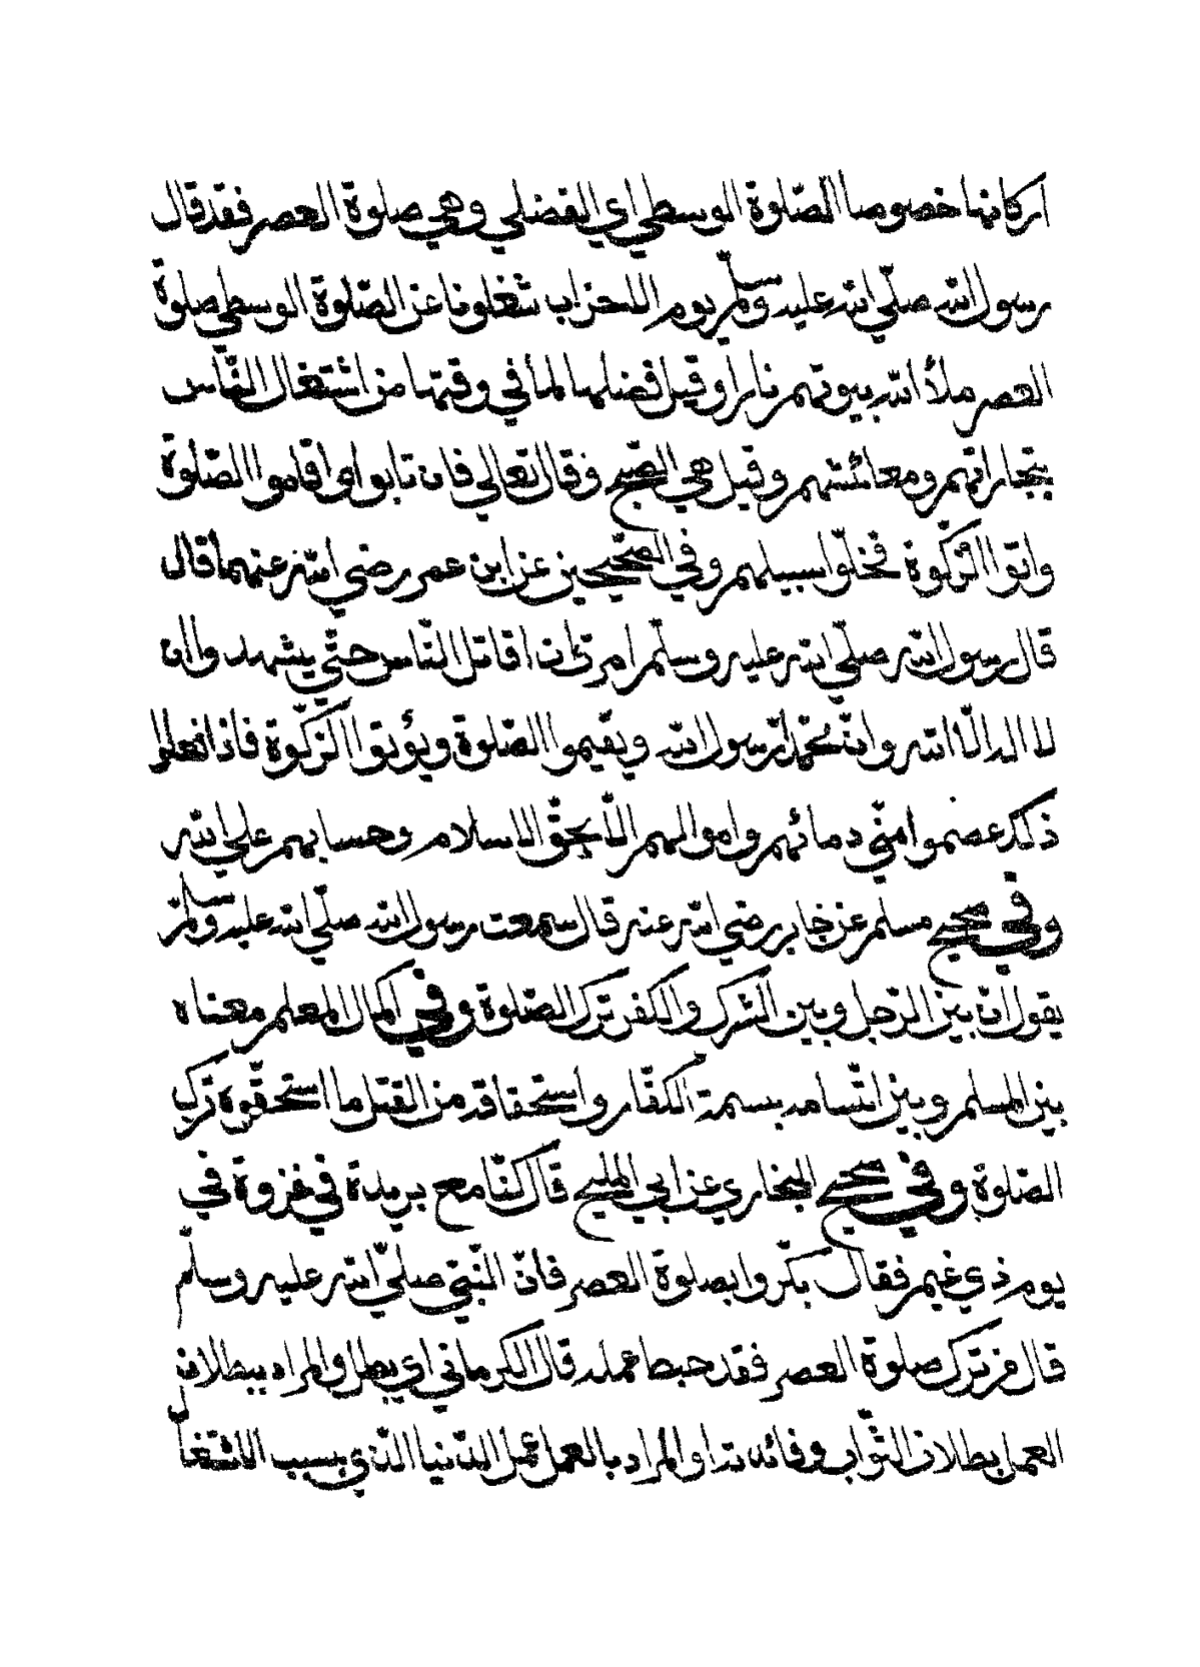 اركانها خصوصا الصّلوة الوسطي اي الفضلي وهي صلوة العصر فقد قال
رسول الله صلّي الله عليه وسلّم يوم الاحزاب شغلونا عن الصّلوة الوسطي صلوة
العصر ملأ الله بيوتهم نارا وقيل فضلها لما في وقتها من اشتغال النّاس
بتجاراتهم ومعائشهم وقيل هي الصّبح وقال تعالي فان تابوا واقاموا الصّلوة
واتوا الزّكوة فخلّوا سبيلهم وفي الصّحيحين عن ابن عمر رضي الله عنهما قال
قال رسول الله صلّي الله عليه وسلّم امرت ان اقاتل النّاس حتّي يشهدوا ان
لا اله الّا الله وانّ محمّدا رسول الله ويقيموا الصّلوة ويؤتوا الزّكوة فاذا فعلوا
ذلك عصموا منّي دمائهم واموالهم الّا بحقّ الاسلام وحسابهم علي الله
وفي صحيح مسلم عن جابر رضي الله عنه قال سمعت رسول الله صلّي الله عليه وسلّم
يقول ان بين الرّجل وبين الشّرك والكفر ترك الصّلوة وفي اكمال المعلم معناه
بين المسلم وبين اتّسامه بسمة الكفّار واستحقاقه من القتل ما استحقّوه ترك
الصّلوة وفي صحيح البخاري عن ابي المليح قال كنّا مع بريدة في غزوة في
يوم ذي غيم فقال بكّروا بصلوة العصر فانّ النّبيّ صلّي الله عليه وسلّم
قال من ترك صلوة العصر فقد حبط عمله قال الكرماني اي بطل والمراد ببطلان
العمل بطلان الثّواب وفائدته او المراد بالعمل عمل الدّنيا الّذي بسبب الاشتغال